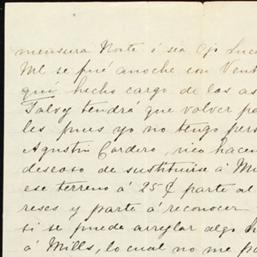 mensura Norte ó sea Ojo Luce
Ml se fué anoche con Vent
quí hecho cargo de las as
Talvz tendrá que volver pa
les pues yo no tengo pers
Agustin Cordero, rico hacen
deseoso de sustituirse á Mi
ese terreno á 25 ¢ parte al
reses y parte á reconocer
si se puede arreglar algo h
á Mills, lo cual no me pa